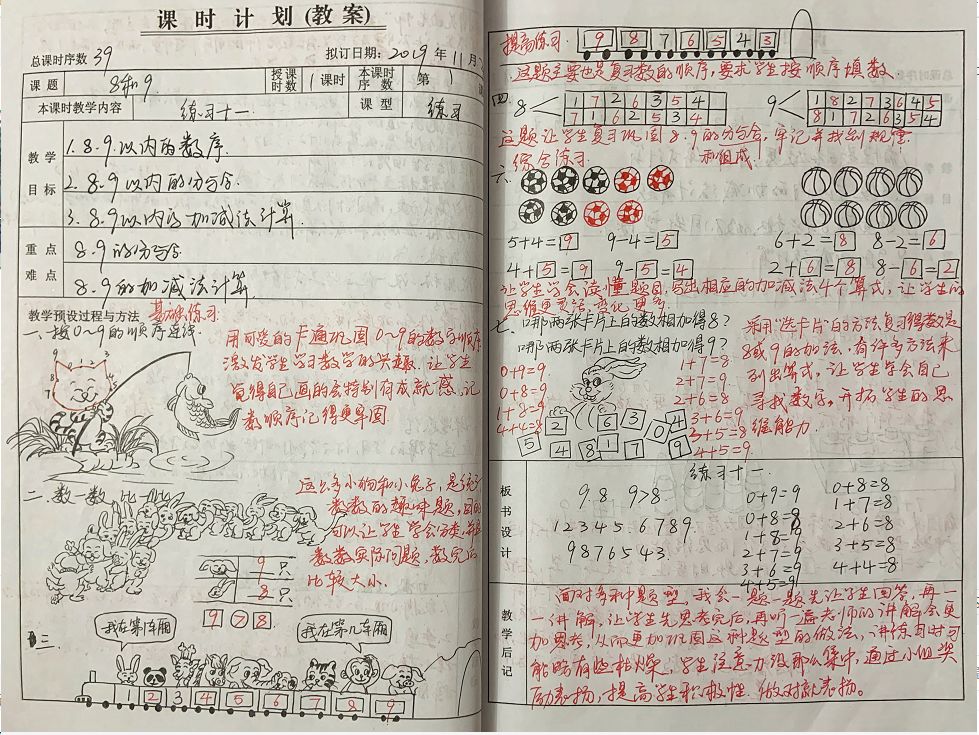 课时计划(教案)
总课时序数 39 拟订日期：2019年11月
课题 8和9 授课时数 1课时 本课时序数 第1
本课时教学内容 练习十一 课型 练习
教学目标
1. 8.9以内的数序.
2. 8.9以内的分与合.
3. 8.9以内的加减法计算.
重点难点
8.9的分与合
8.9的加减法计算.
教学预设过程与方法 基础练习:
一、按0~9的顺序连线.
用可爱的卡通巩固0~9的数字顺序
激发学生学习数学的兴趣.让学生
觉得自己画的会特别有成就感,记
数顺序记得更牢固
二、数一数,比一比
这么多小狗和小兔子,是练习
数数的趣味题,目的
可以让学生学会分类,并且
数数实际问题,数完后
比较大小.
9只
8只
9 > 8
三.
我在第1车厢
我在第几车厢
1 2 3 4 5 6 7 8 9
提高练习: 9 8 7 6 5 4 3
这题主要也是复习数的顺序,要求学生按顺序填数
四. 8 1 7 2 6 3 5 4
7 1 6 2 5 3 4
9 1 8 2 7 3 6 4 5
8 1 7 2 6 3 5 4
这题让学生复习巩固8.9的分与合,牢记并找到规律
和组成.
综合练习
六、
5+4=9 9-4=5 6+2=8 8-2=6
4+5=9 9-5=4 2+6=8 8-6=2
让学生学会读懂题目,写出相应的加减法4个算式,让学生的
思维更灵活,变记更牢
七、哪两张卡片上的数相加得8?
哪两张卡片上的数相加得9?
0+9=9
0+8=8
1+8=9
4+4=8
1+7=8
2+7=9
2+6=8
3+6=9
3+5=8
4+5=9
5 2 6 3 0 4
5 4 8 1 7 9
采用"选卡片"的方法复习得数是
8或9的加法.有许多方法来
列出算式,让学生学会自己
寻找数字,开拓学生的思
维能力.
板书设计
练习十一.
9.8. 9>8
1 2 3 4 5 . 6 7 8 9
9 8 7 6 5 4 3
0+9=9
0+8=8
1+8=9
2+7=9
3+6=9
4+5=9
0+8=8
1+7=8
2+6=8
3+5=8
4+4=8
教学后记
面对多种题型,我会一题一题先让学生回答,再一
一讲解,让学生先思考完后,再听一遍老师的讲解会更
加思考,从而更加巩固这种题型的做法,讲练习时可
能略有些枯燥,学生注意力没那么集中,通过小组奖
励表扬,提高学生积极性.做对就表扬。